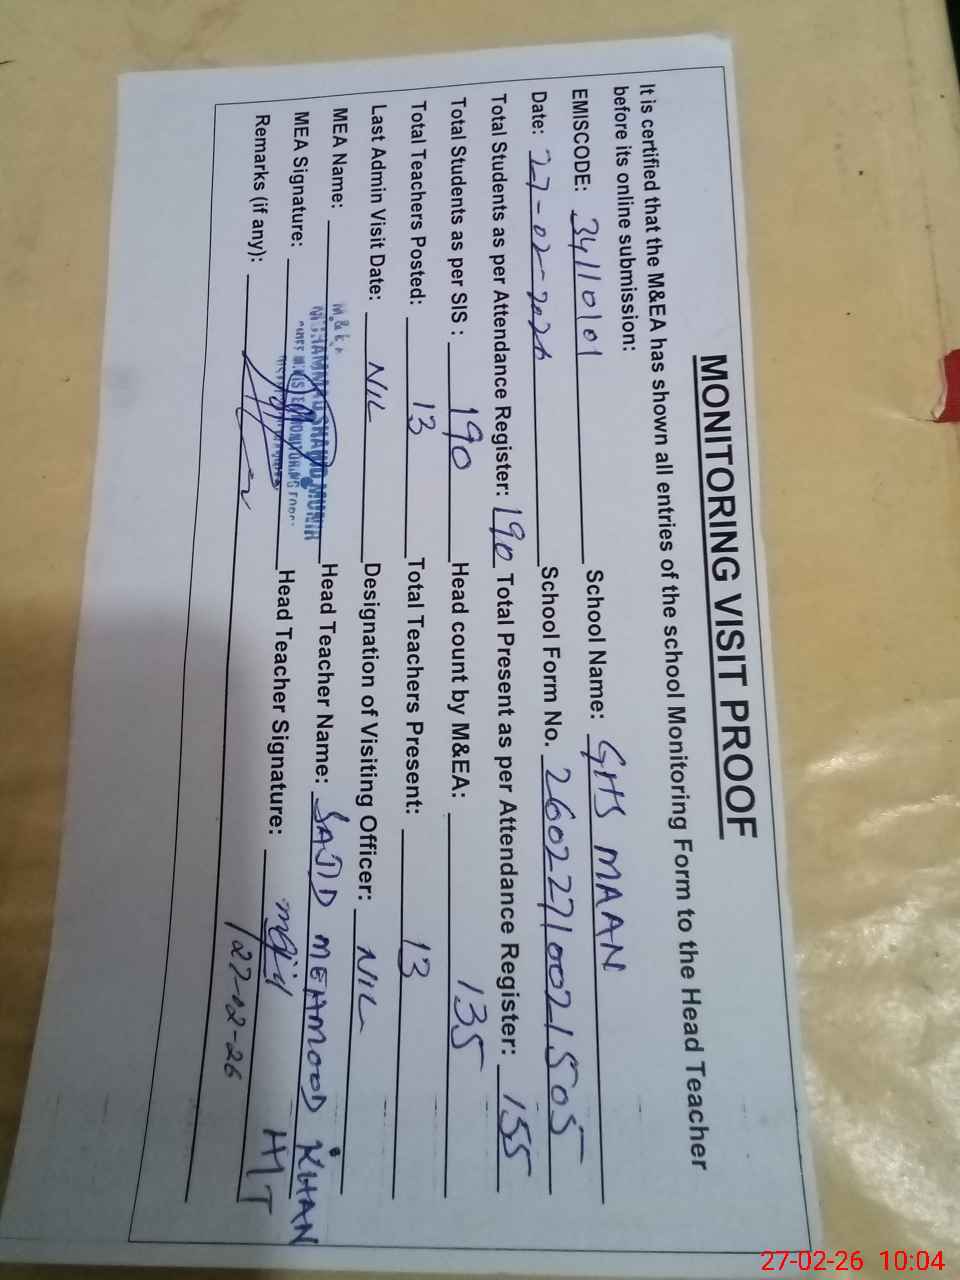 MONITORING VISIT PROOF
It is certified that the M&EA has shown all entries of the school Monitoring Form to the Head Teacher
before its online submission:
EMISCODE: 34110101 School Name: GHS MAAN
Date: 27-02-2026 School Form No. 26022710021505
Total Students as per Attendance Register: 190 Total Present as per Attendance Register: 155
Total Students as per SIS : 190 Head count by M&EA: 135
Total Teachers Posted: 13 Total Teachers Present: 13
Last Admin Visit Date: NIL Designation of Visiting Officer: NIL
MEA Name: MUHAMMAD SHAHID MUNIR Head Teacher Name: SAJID MEHMOOD KHAN
MEA Signature: MONITORING FORCE Head Teacher Signature: HT
Remarks (if any): 27-02-26
27-02-26 10:04